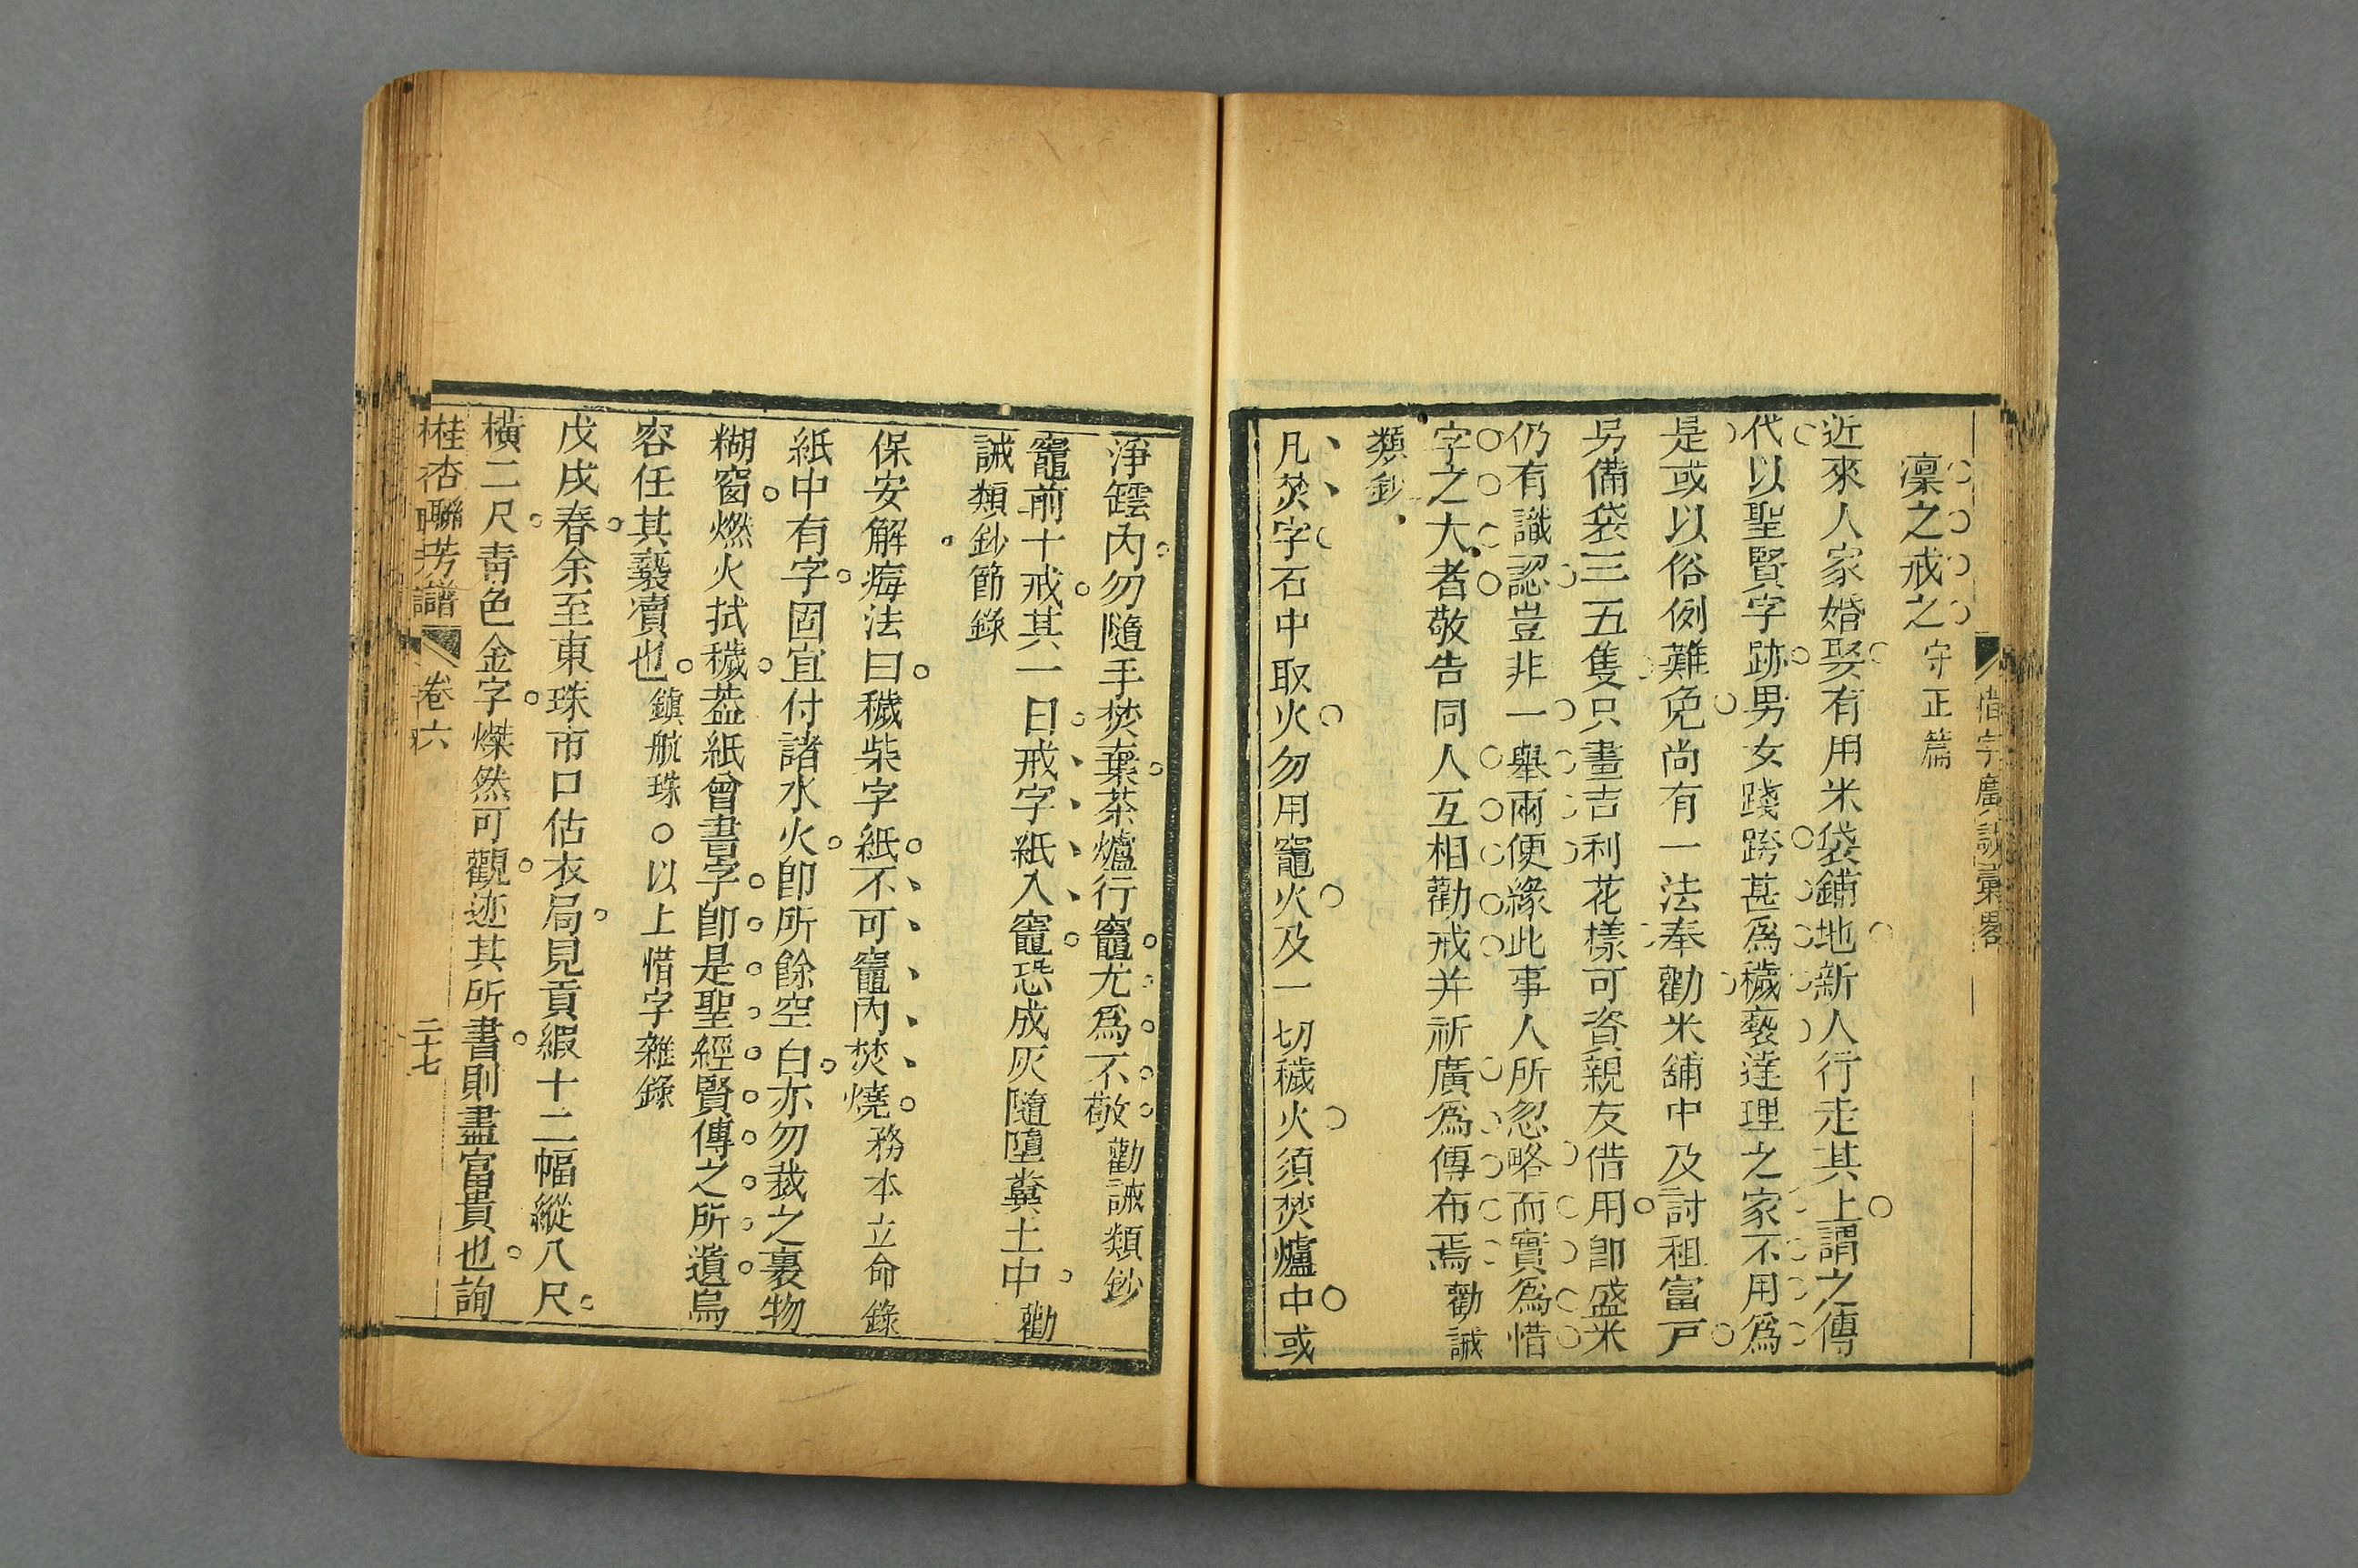 惜字廣誡彙畧
凜之戒之守正篇
近來人家婚娶有用米袋鋪地新人行走其上謂之傳
代以聖賢字跡男女踐跨甚爲穢褻達理之家不用爲
是或以俗例難免尚有一法奉勸米舖中及討租富戸
另備袋三五隻只畫吉利花樣可資親友借用卽盛米
仍有識認豈非一舉兩便緣此事人所忽略而實爲惜
字之大者敬告同人互相勸戒并祈廣爲傳布焉勸誡
類鈔
凡焚字石中取火勿用竈火及一切穢火須焚爐中或
淨罎內勿隨手焚棄茶爐行竈尤爲不敬勸誡類鈔
竈前十戒其一曰戒字紙入竈恐成灰隨墮糞土中勸
誡類鈔節錄
保安解痗法曰穢柴字紙不可竈內焚燒務本立命錄
紙中有字固宜付諸水火卽所餘空白亦勿裁之裹物
糊窗燃火拭穢葢紙曾書字卽是聖經賢傳之所遺烏
容任其褻瀆也鎮航珠○以上惜字雜錄
戊戌春余至東珠市口估衣局見貢緞十二幅縱八尺
橫二尺靑色金字燦然可觀迹其所書則盡富貴也詢
桂杏聯芳譜 卷六 二十七